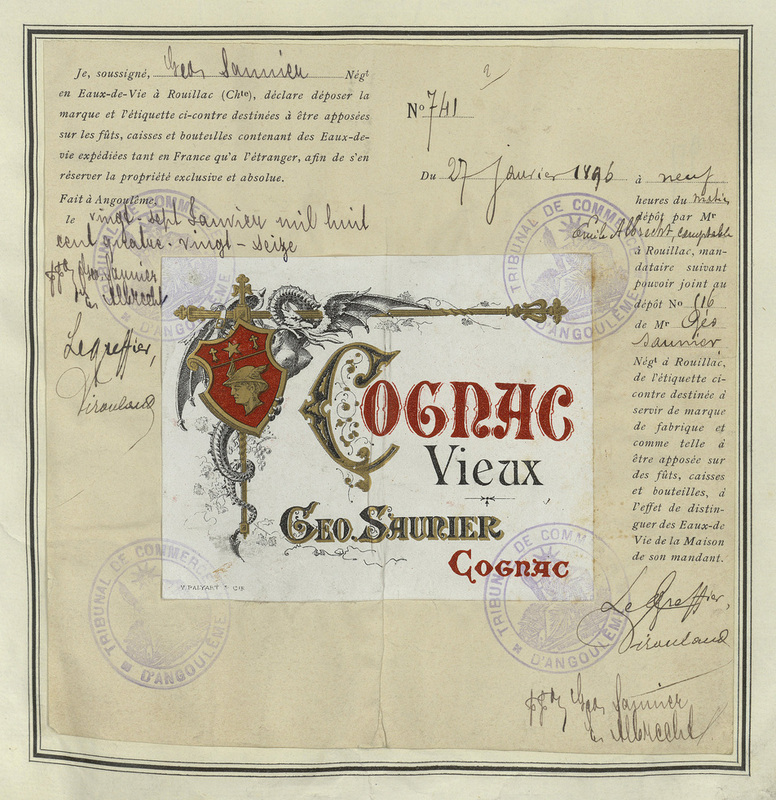 Je, soussigné, Geo. Saunier Négt
en Eaux-de-Vie à Rouillac (Chte), déclare déposer la
marque et l'étiquette ci-contre destinées à être apposées
sur les fûts, caisses et bouteilles contenant des Eaux-de-
vie expédiées tant en France qu'a l'étranger, afin de s'en
réserver la propriété exclusive et absolue.
Fait à Angoulême,
le vingt-sept Janvier mil huit
cent quatre-vingt-seize
Geo. Saunier
Albrecht
Le Greffier,
No 741
Du 27 janvier 1896 à neuf
heures du matin
dépôt par Mr
Emile Albrecht, comptable
à Rouillac, man-
dataire suivant
pouvoir joint au
dépôt No 116
de Mr Géo
Saunier
Négt à Rouillac,
de l'étiquette ci-
contre destinée à
servir de marque
de fabrique et
comme telle à
être apposée sur
des fûts, caisses
et bouteilles, à
l'effet de distin-
guer des Eaux-de
Vie de la Maison
de son mandant.
Le Greffier,
Geo. Saunier
Albrecht
COGNAC
Vieux
GEO. SAUNIER
COGNAC
TRIBUNAL DE COMMERCE
D'ANGOULÊME
TRIBUNAL DE COMMERCE
D'ANGOULÊME
TRIBUNAL DE COMMERCE
D'ANGOULÊME
TRIBUNAL DE COMMERCE
D'ANGOULÊME